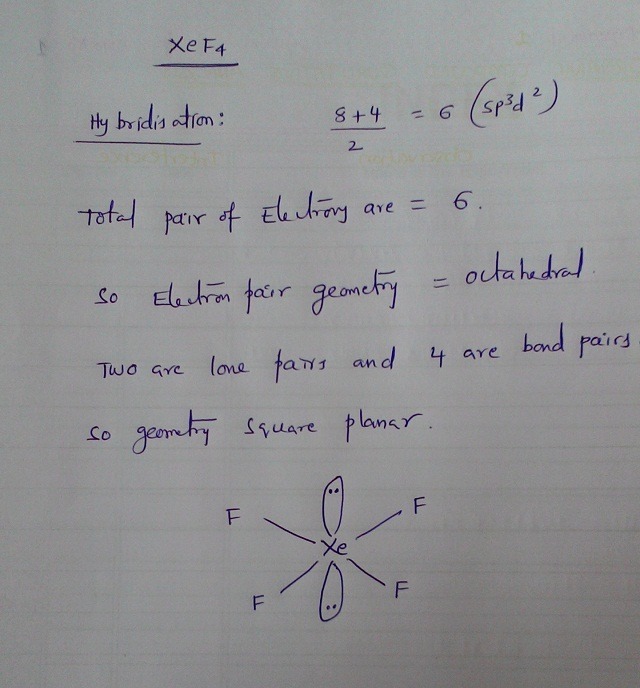 XeF4
Hybridisation: 8+4/2 = 6 (sp³d²)
Total pair of Electrons are = 6.
So Electron pair geometry = octahedral.
Two are lone pairs and 4 are bond pairs.
So geometry square planar.
F F
Xe
F F